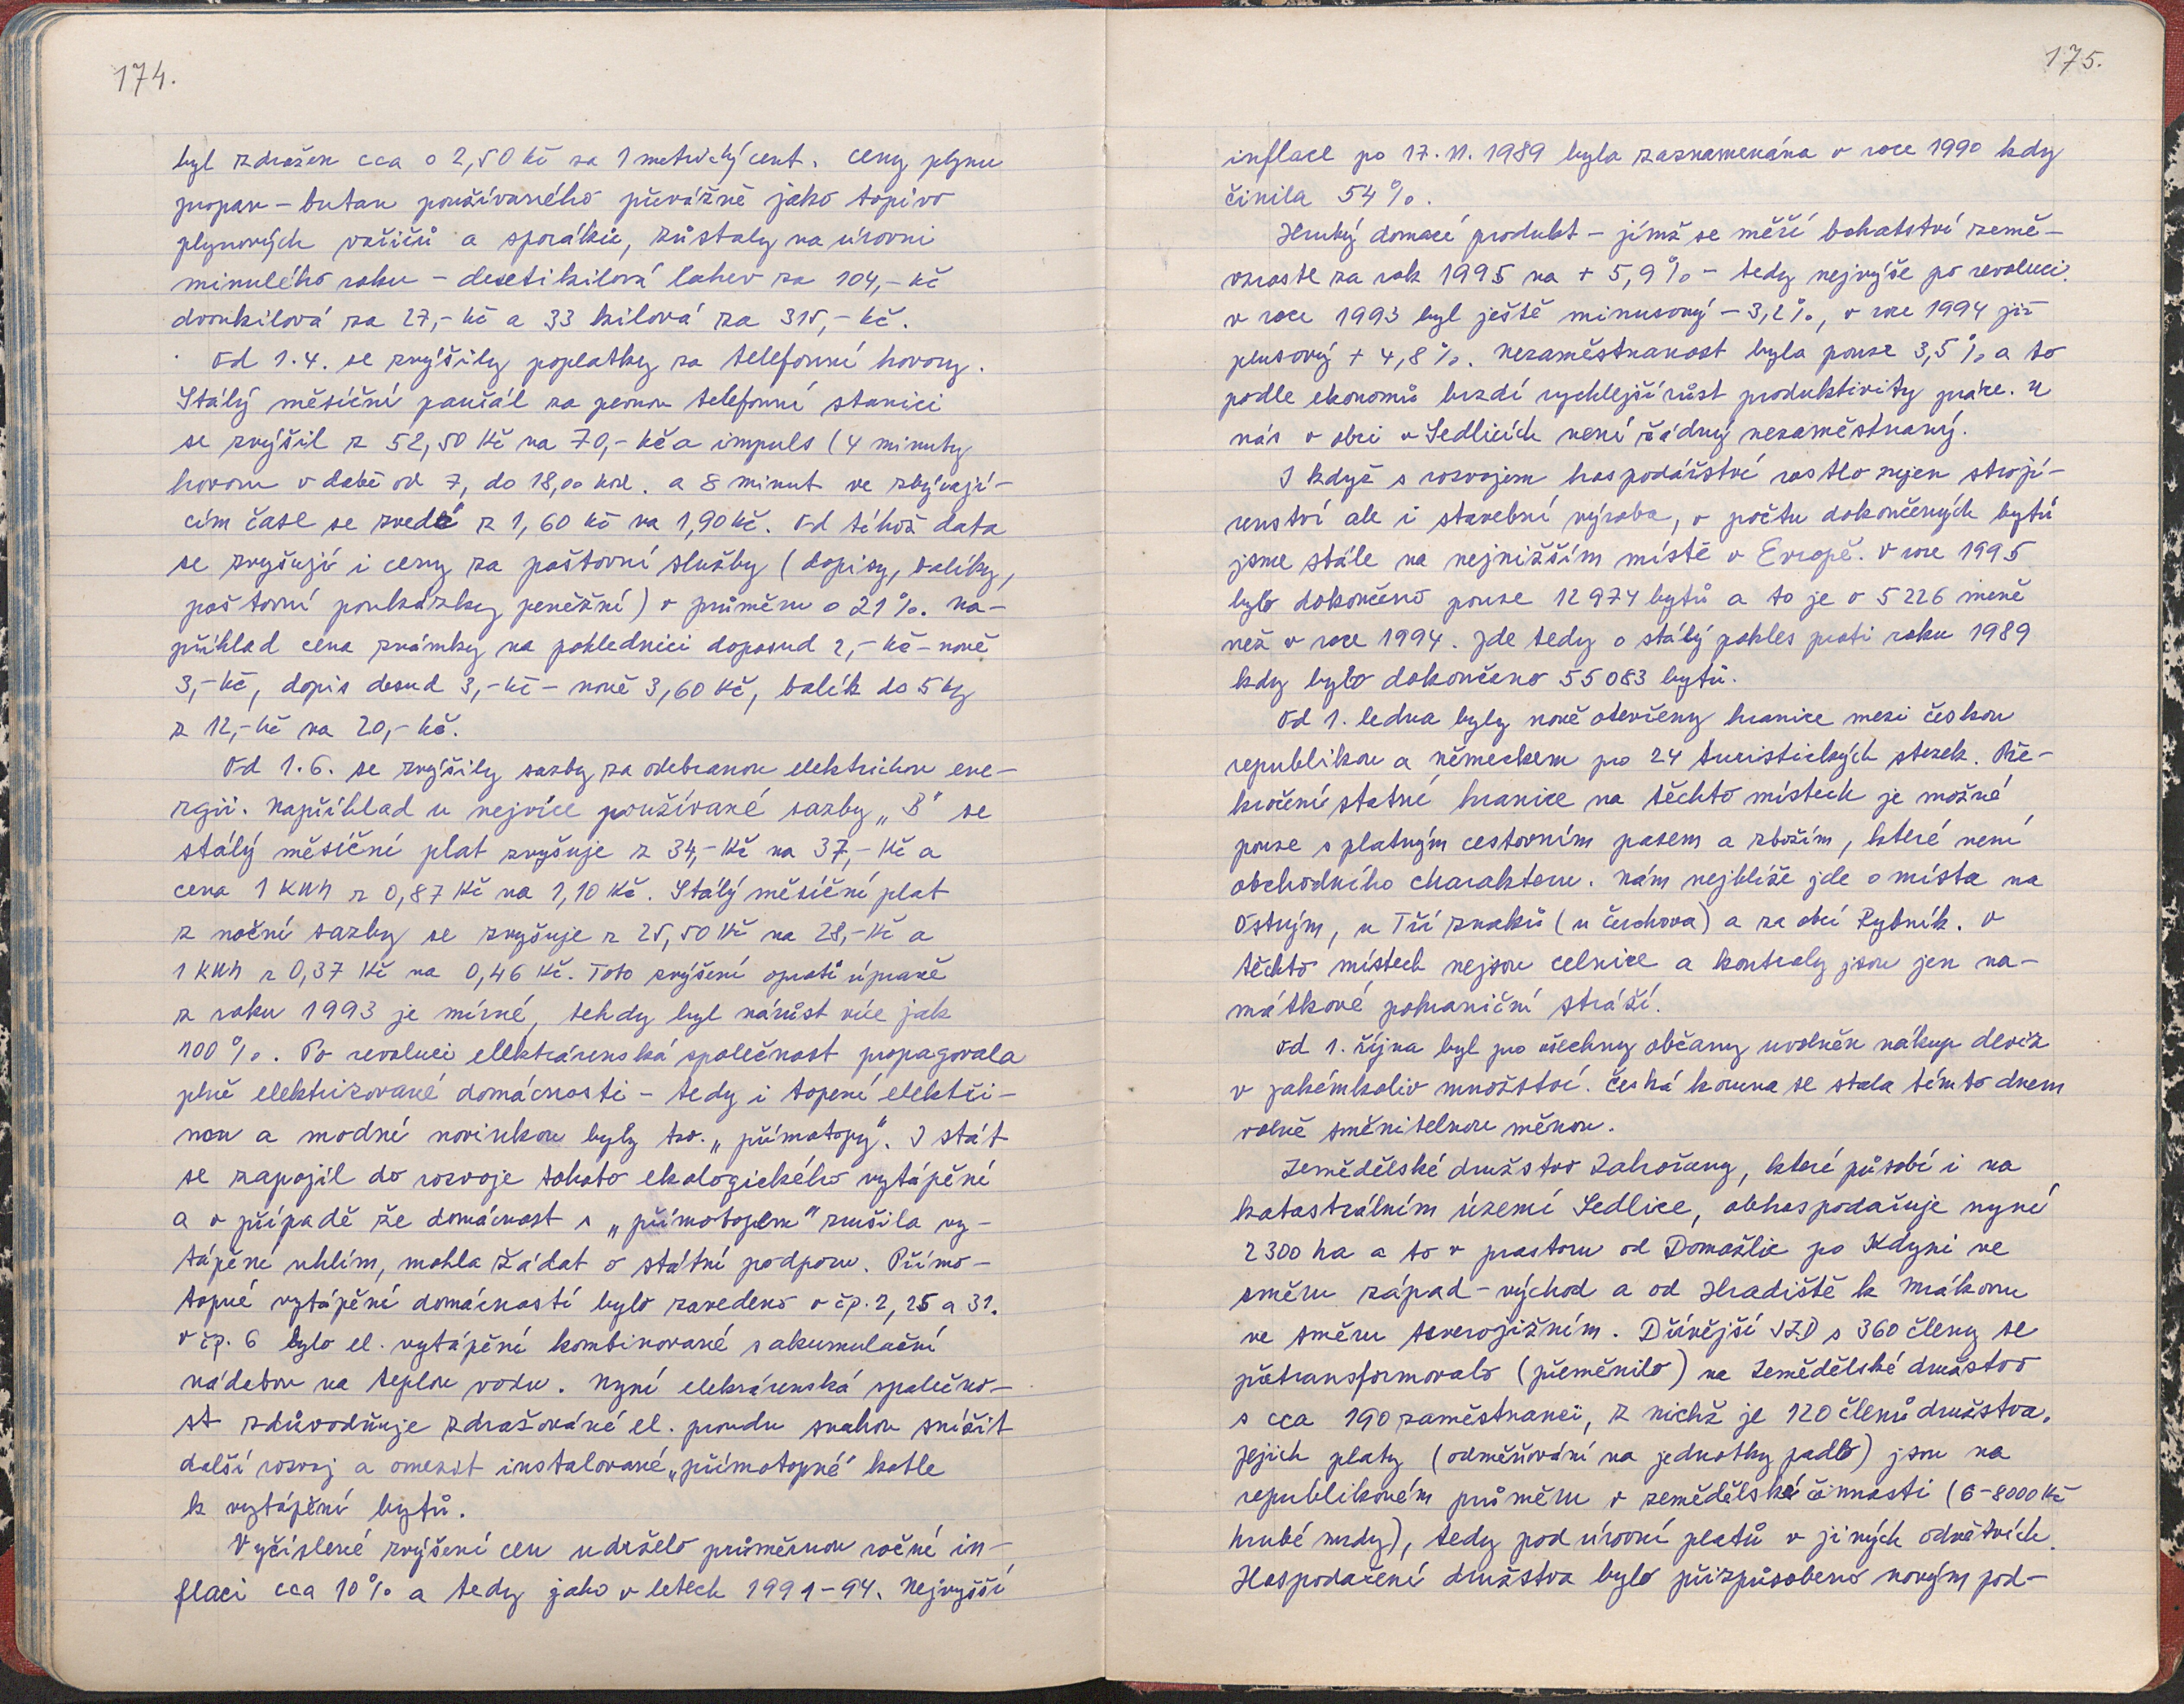 174.
byl zdražen cca o 2,50 Kč za 1 metrický cent. Ceny plynu
propan – butan používaného převážně jako topivo
plynových vařičů a sporáků, zůstaly na úrovni
minulého roku – desetikilová lahev za 104,– Kč
dvoukilová za 27,– Kč a 33 kilová za 315,– Kč.
Od 1.4. se zvýšily poplatky za telefonní hovory.
Stálý měsíční paušál za pevnou telefonní stanici
se zvýšil z 52,50 Kč na 70,– Kč a impuls (4 minuty
hovoru v době od 7, do 18,00 hod. a 8 minut ve zbývají–
cím čase se zvedá z 1,60 Kč na 1,90 Kč. Od téhož data
se zvyšují i ceny za poštovní služby (dopisy, balíky,
poštovní poukázky peněžní) v průměru o 21%. Na–
příklad cena známky na pohlednici doposud 2,– Kč – nově
3,– Kč, dopis dosud 3,– Kč – nově 3,60 Kč, balík do 5 kg
z 12,– Kč na 20,– Kč.
Od 1.6. se zvýšily sazby za odebranou elektrickou ene–
rgii. Například u nejvíce používané sazby „B“ se
stálý měsíční plat zvyšuje z 34,– Kč na 37,– Kč a
cena 1 KWh z 0,87 Kč na 1,10 Kč. Stálý měsíční plat
z noční sazby se zvyšuje z 25,50 Kč na 28,– Kč a
1 KWh z 0,37 Kč na 0,46 Kč. Toto zvýšení oproti úpravě
z roku 1993 je mírné, tehdy byl nárůst více jak
100%. Po revoluci elektrárenská společnost propagovala
plně elektrizované domácnosti – tedy i topení elektři–
nou a modní novinkou byly tzv. „přímotopy“. I stát
se zapojil do rozvoje tohoto ekologického vytápění
a v případě že domácnost s „přímotopem“ zrušila vy–
tápění uhlím, mohla žádat o státní podporu. Přímo–
topné vytápění domácností bylo zavedeno v čp. 2, 25 a 31.
V čp. 6 bylo el. vytápění kombinované s akumulační
nádobou na teplou vodu. Nyní elekrárenská společno–
st zdůvodňuje zdražování el. proudu snahou snížit
další rozvoj a omezit instalované „přímotopné“ kotle
k vytápění bytů.
Vyčíslené zvýšení cen udrželo průměrnou roční in–
flaci cca 10% a tedy jako v letech 1991–94. Nejvyšší
175.
inflace po 17.11.1989 byla zaznamenána v roce 1990 kdy
činila 54%.
Hrubý domací produkt – jímž se měří bohatství země –
vzroste za rok 1995 na + 5,9% – tedy nejvýše po revoluci.
v roce 1993 byl ještě minusový – 3,2%, v roce 1994 již
plusový + 4,8%. Nezaměstnanost byla pouze 3,5% a to
podle ekonomů brzdí rychlejší růst produktivity práce. U
nás v obci v Sedlicích není žádný nezaměstnaný.
I když s rozvojem hospodářství rostlo nejen strojí–
renství ale i stavební výroba, v počtu dokončených bytů
jsme stále na nejnižším místě v Evropě. V roce 1995
bylo dokončeno pouze 12 974 bytů a to je o 5 226 méně
než v roce 1994. Jde tedy o stálý pokles proti roku 1989
kdy bylo dokončeno 55 083 bytů.
Od 1. ledna byly nově otevřeny hranice mezi českou
republikou a německem pro 24 turistických stezek. Pře–
kročení statní hranice na těchto místech je možné
pouze s platným cestovním pasem a zbožím, které není
obchodního charakteru. Nám nejblíže jde o místa na
Ostrým, u Tří znaků (u Čerchova) a za obcí Rybník. V
těchto místech nejsou celnice a kontroly jsou jen na–
mátkové pohraniční stráží.
Od 1. října byl pro všechny občany uvolněn nákup deviz
v jakémkoliv množství. Česká koruna se stala tímto dnem
volně směnitelnou měnou.
Zemědělské družstvo Zahořany, které působí i na
katastrálním území Sedlice, obhospodařuje nyní
2300 ha a to v prostoru od Domažlic po Kdyni ve
směru západ – východ a od Hradiště k Mrákovu
ve směru severojižním. Dřívější JZD s 360 členy se
přetransformovalo (přeměnilo) na Zemědělské družstvo
s cca 190 zaměstnanci, z nichž je 120 členů družstva.
Jejich platy (odměňování na jednotky padlo) jsou na
republikovém průměru v zemědělské činnosti (6–8000 Kč
hrubé mzdy), tedy pod úrovní platů v jiných odvětvích.
Hospodaření družstva bylo přizpůsobeno novým pod–